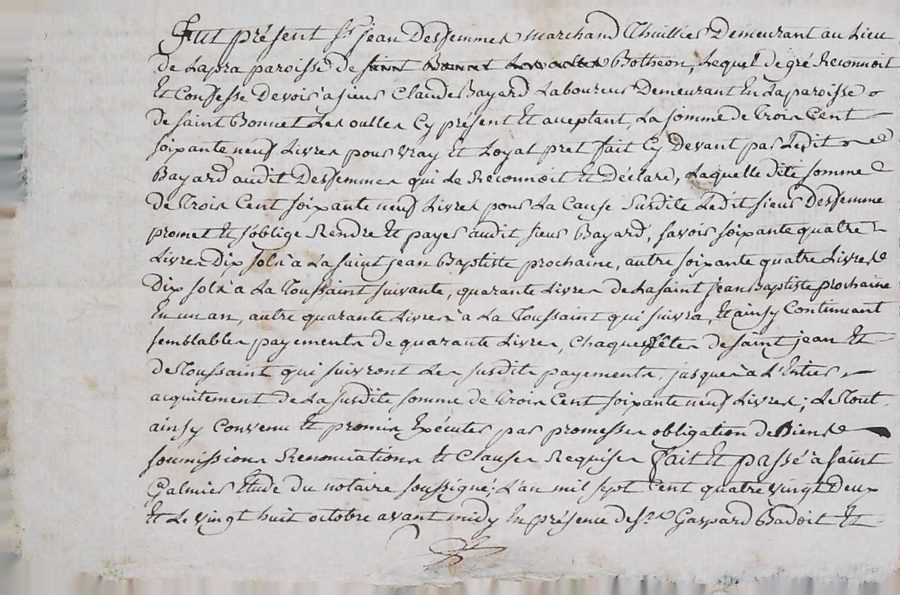 Fut présent Sr jean Desjemmes marchand Thuillier Demeurant au Lieu
De Lapra paroisse de Bothéon, Lequel de gré Reconnoit
Et Confesse Devoir a sieur Claude Bayard Laboureur Demeurant En La paroisse
De saint Bonnet Les oulles Cy présent Et aceptant, La somme de Trois Cent
soixante neuf Livres pour vray Et Loyal pret fait Cy Devant par Ledit
Bayard audit Desjemmes qui Le Reconnoit Et Déclare, Laquelle dite somme
De Trois Cent soixante neuf Livres pour La Cause susdite Ledit sieur Desjemme
promet Et s'oblige Rendre Et payer audit sieur Bayard, savoir soixante quatre
Livres Dix sols a La saint jean Baptiste prochaine, autre soixante quatre Livres
Dix sols a La Toussaint suivante, quarante Livres de La saint jean Baptiste prochaine
En un an, autre quarante Livres a La Toussaint qui suivra, Et ainsy Continuant
semblables payements de quarante Livres, Chaques fêtes de saint jean Et
de Toussaint qui suivront Les susdits payements, jusques a L'Entier
acquitement de La susdite somme de Trois Cent soixante neuf Livres; Le Tout
ainsy Convenu Et promis Exécuter par promesses obligation de Biens
soumissions Renonciations Et Clauses Requises fait Et passé a saint
Galmier Etude du notaire soussigné, L'an mil sept Cent quatre vingt Deux
Et Le vingt huit octobre avant midy En présence de Sr Gaspard Badoit Et